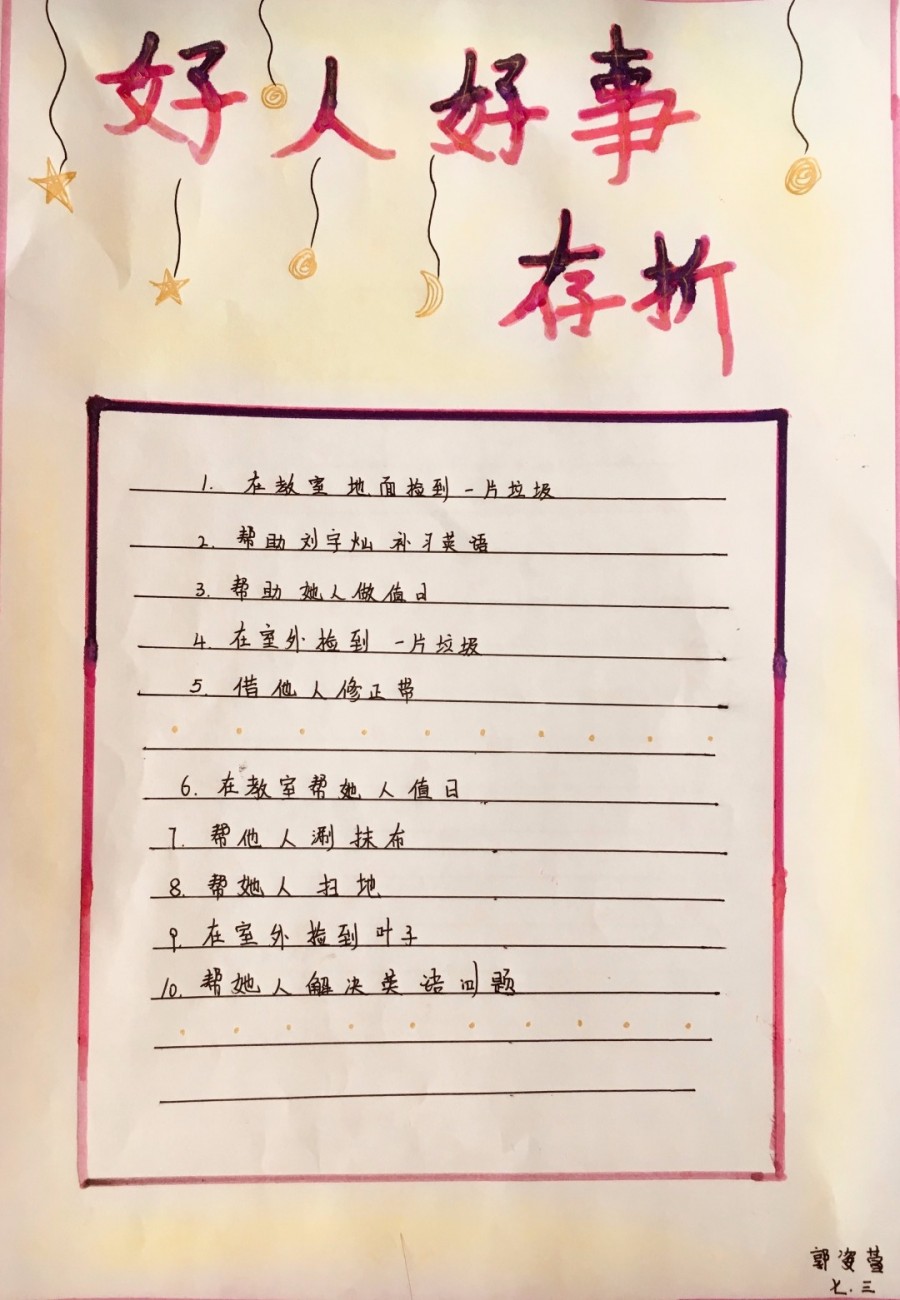 好人好事
存折
1. 在教室地面捡到一片垃圾
2. 帮助刘宇灿补习英语
3. 帮助她人做值日
4. 在室外捡到一片垃圾
5. 借他人修正带
6. 在教室帮她人值日
7. 帮他人涮抹布
8. 帮她人扫地
9. 在室外捡到叶子
10. 帮她人解决英语问题
郭姿莹
七.三